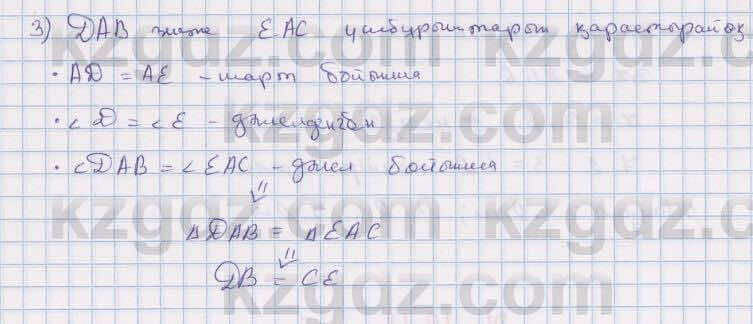 3) DAB және EAC үшбұрыштарын қарастырайық
• AD = AE – шарт бойынша
• ∠D = ∠E – дәлелденген
• ∠DAB = ∠EAC – дәлел бойынша
⇓
△DAB = △EAC
⇓
DB = CE
kzgdz.com
kzgdz.com
kzgdz.com
kzgdz.com